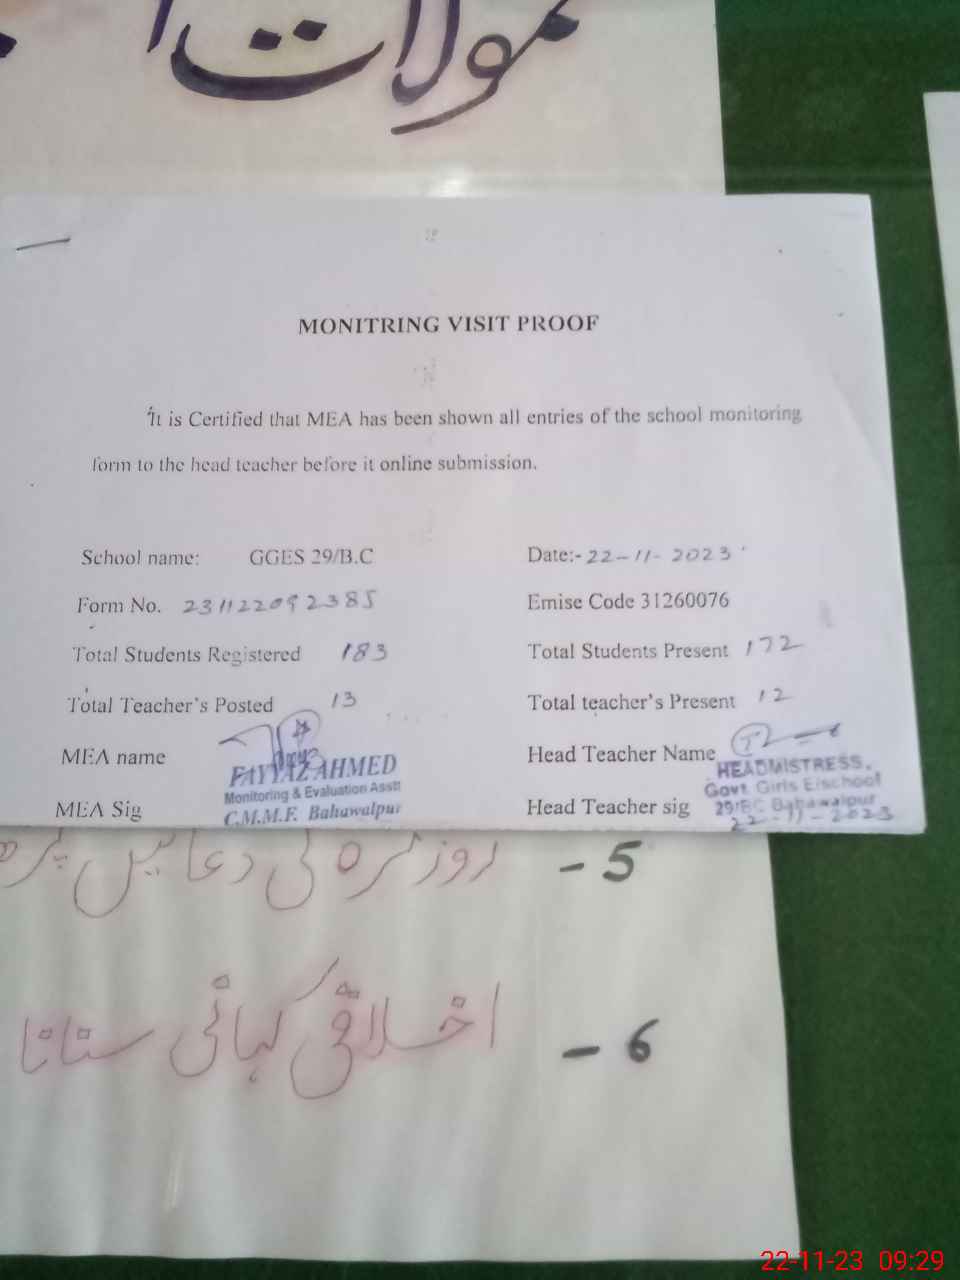 MONITRING VISIT PROOF
It is Certified that MEA has been shown all entries of the school monitoring
form to the head teacher before it online submission.
School name: GGES 29/B.C Date:- 22-11-2023
Form No. 231122092385 Emise Code 31260076
Total Students Registered 183 Total Students Present 172
Total Teacher's Posted 13 Total teacher's Present 12
MEA name Head Teacher Name
FAYYAZ AHMED HEADMISTRESS.
Monitoring & Evaluation Asstt Govt. Girls E/school
MEA Sig C.M.M.F. Bahawalpur Head Teacher sig 29/BC Bahawalpur
22-11-2023
5 - روز مرہ کی دعائیں
6 - اخلاقی کہانی سنانا
22-11-23 09:29